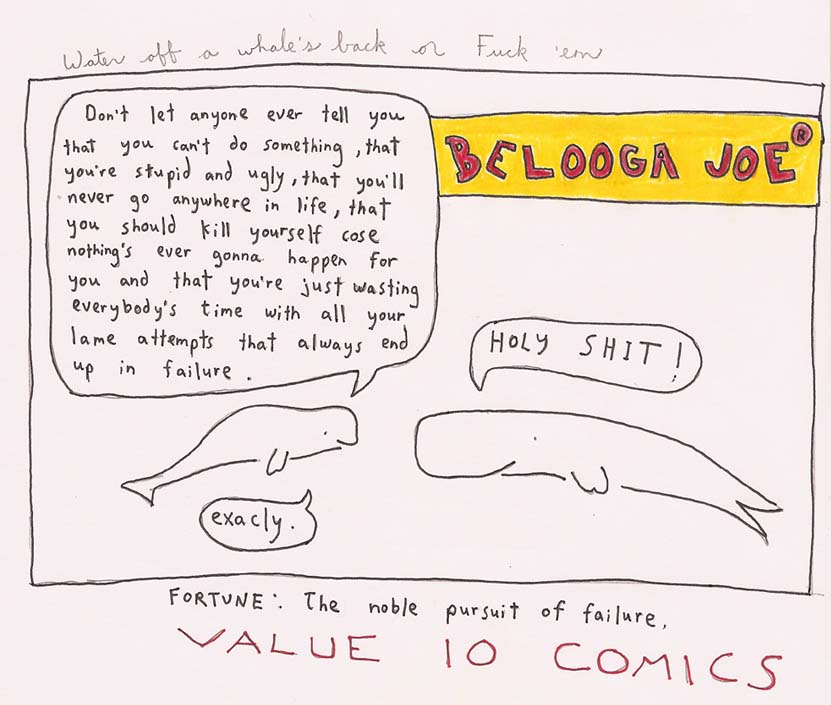 Water off a whale's back or Fuck 'em
Don't let anyone ever tell you
that you can't do something, that
you're stupid and ugly, that you'll
never go anywhere in life, that
you should kill yourself cose
nothing's ever gonna happen for
you and that you're just wasting
everybody's time with all your
lame attempts that always end
up in failure.
BELOOGA JOE®
HOLY SHIT!
exacly.
FORTUNE: The noble pursuit of failure.
VALUE 10 COMICS